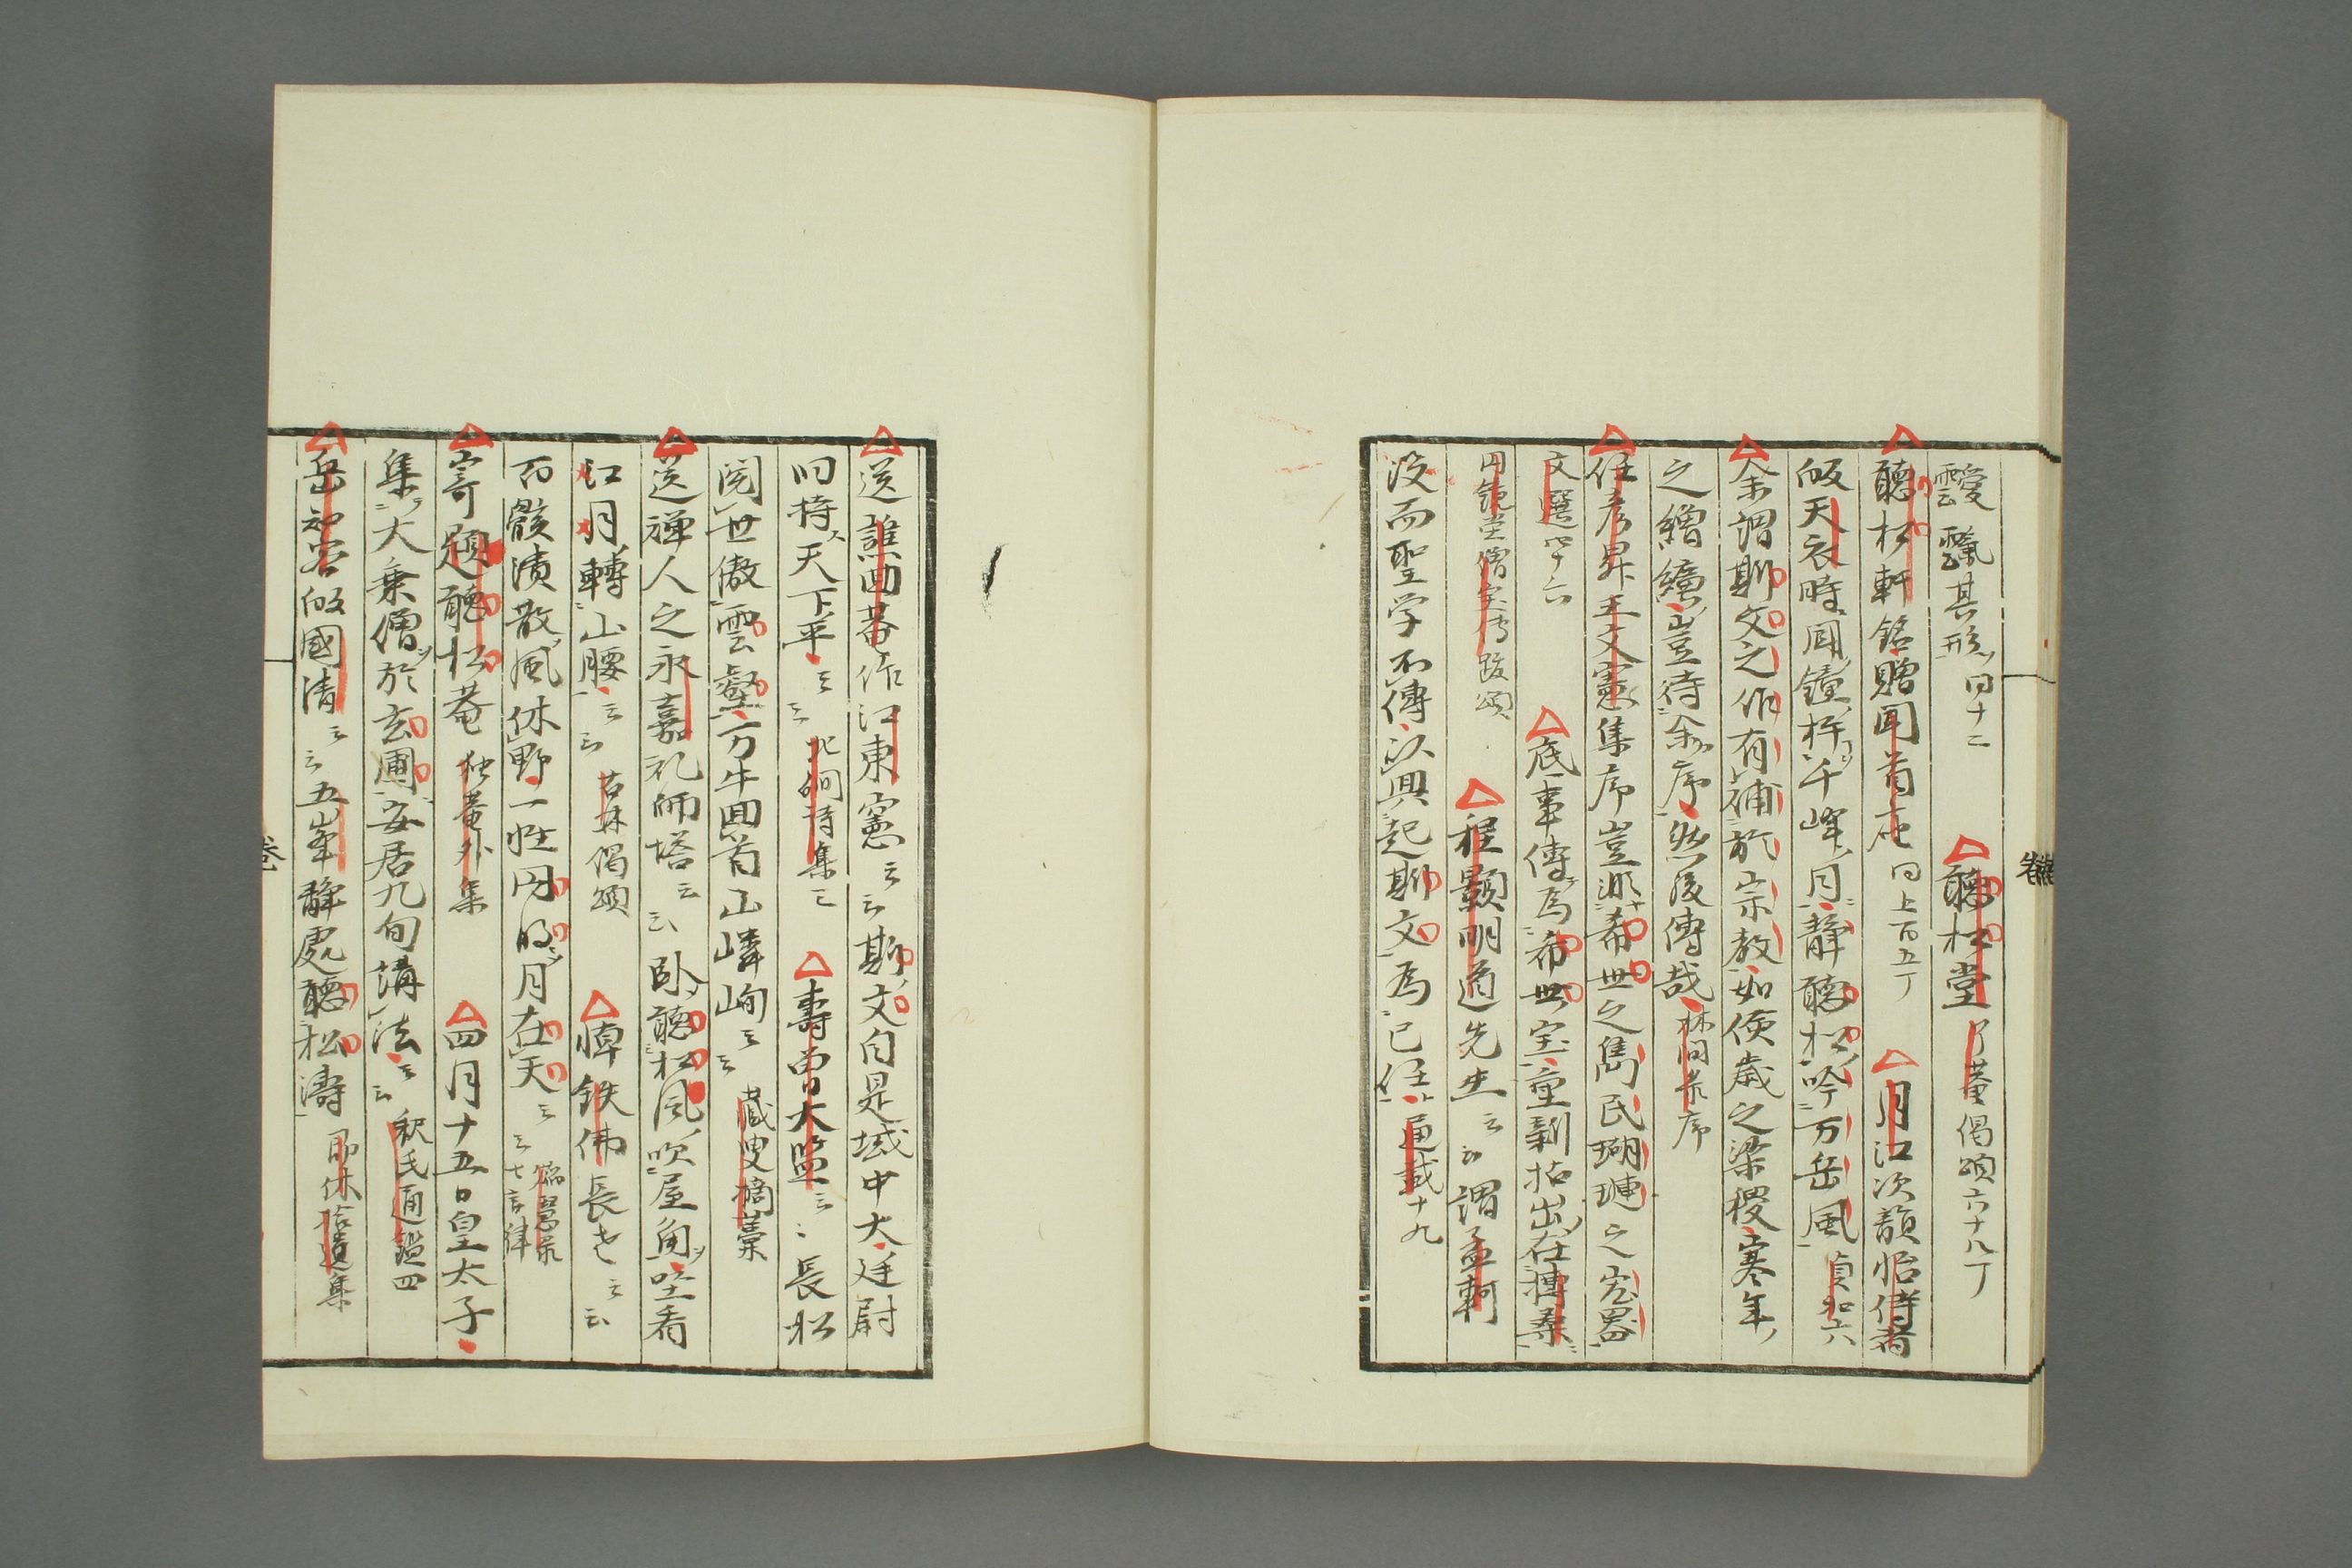 靉靆其形同十二 聽松堂了菴偈頌六十八丁
聽松軒銘贈聞首座同上百五丁 月江次韻怡侍者
皈天衣時聞鐘杵千峰月靜聽松吟万岳風貞和六
余謂斯文之作有補於宗教如儉歳之梁稷寒年
之繒纊豈待余序然後傳哉林間录序
任彦昇王文憲集序豈非希世之雋民瑚璉之宏器
文選四十六 底事傳為希世宝重新拈出在摶桑
円鏡堂僧宝傳跋頌 程顥明道先生云云謂孟軻
没而聖学不傳以興起斯文為己任通載十九
送譙四菴作江東憲云云斯文自是域中大廷尉
旧持天下平云云北磵詩集三 壽曽大監云云長松
閲世傲雲壑万牛回首山嶙峋云云蔵叟摘藁
送禅人之永嘉礼師塔云云卧聽松風吹屋角坐看
江月轉山腰云云古林偈頌 悼鉄佛長老云云
百骸潰散風休野一性円明月在天云云七言律
寄題聽松菴独菴外集 四月十五日皇太子
集大乗僧於玄圃安居九旬講法云云釈氏通鑑四
岳知客皈國清云云五峯靜處聽松濤即休拾遺集